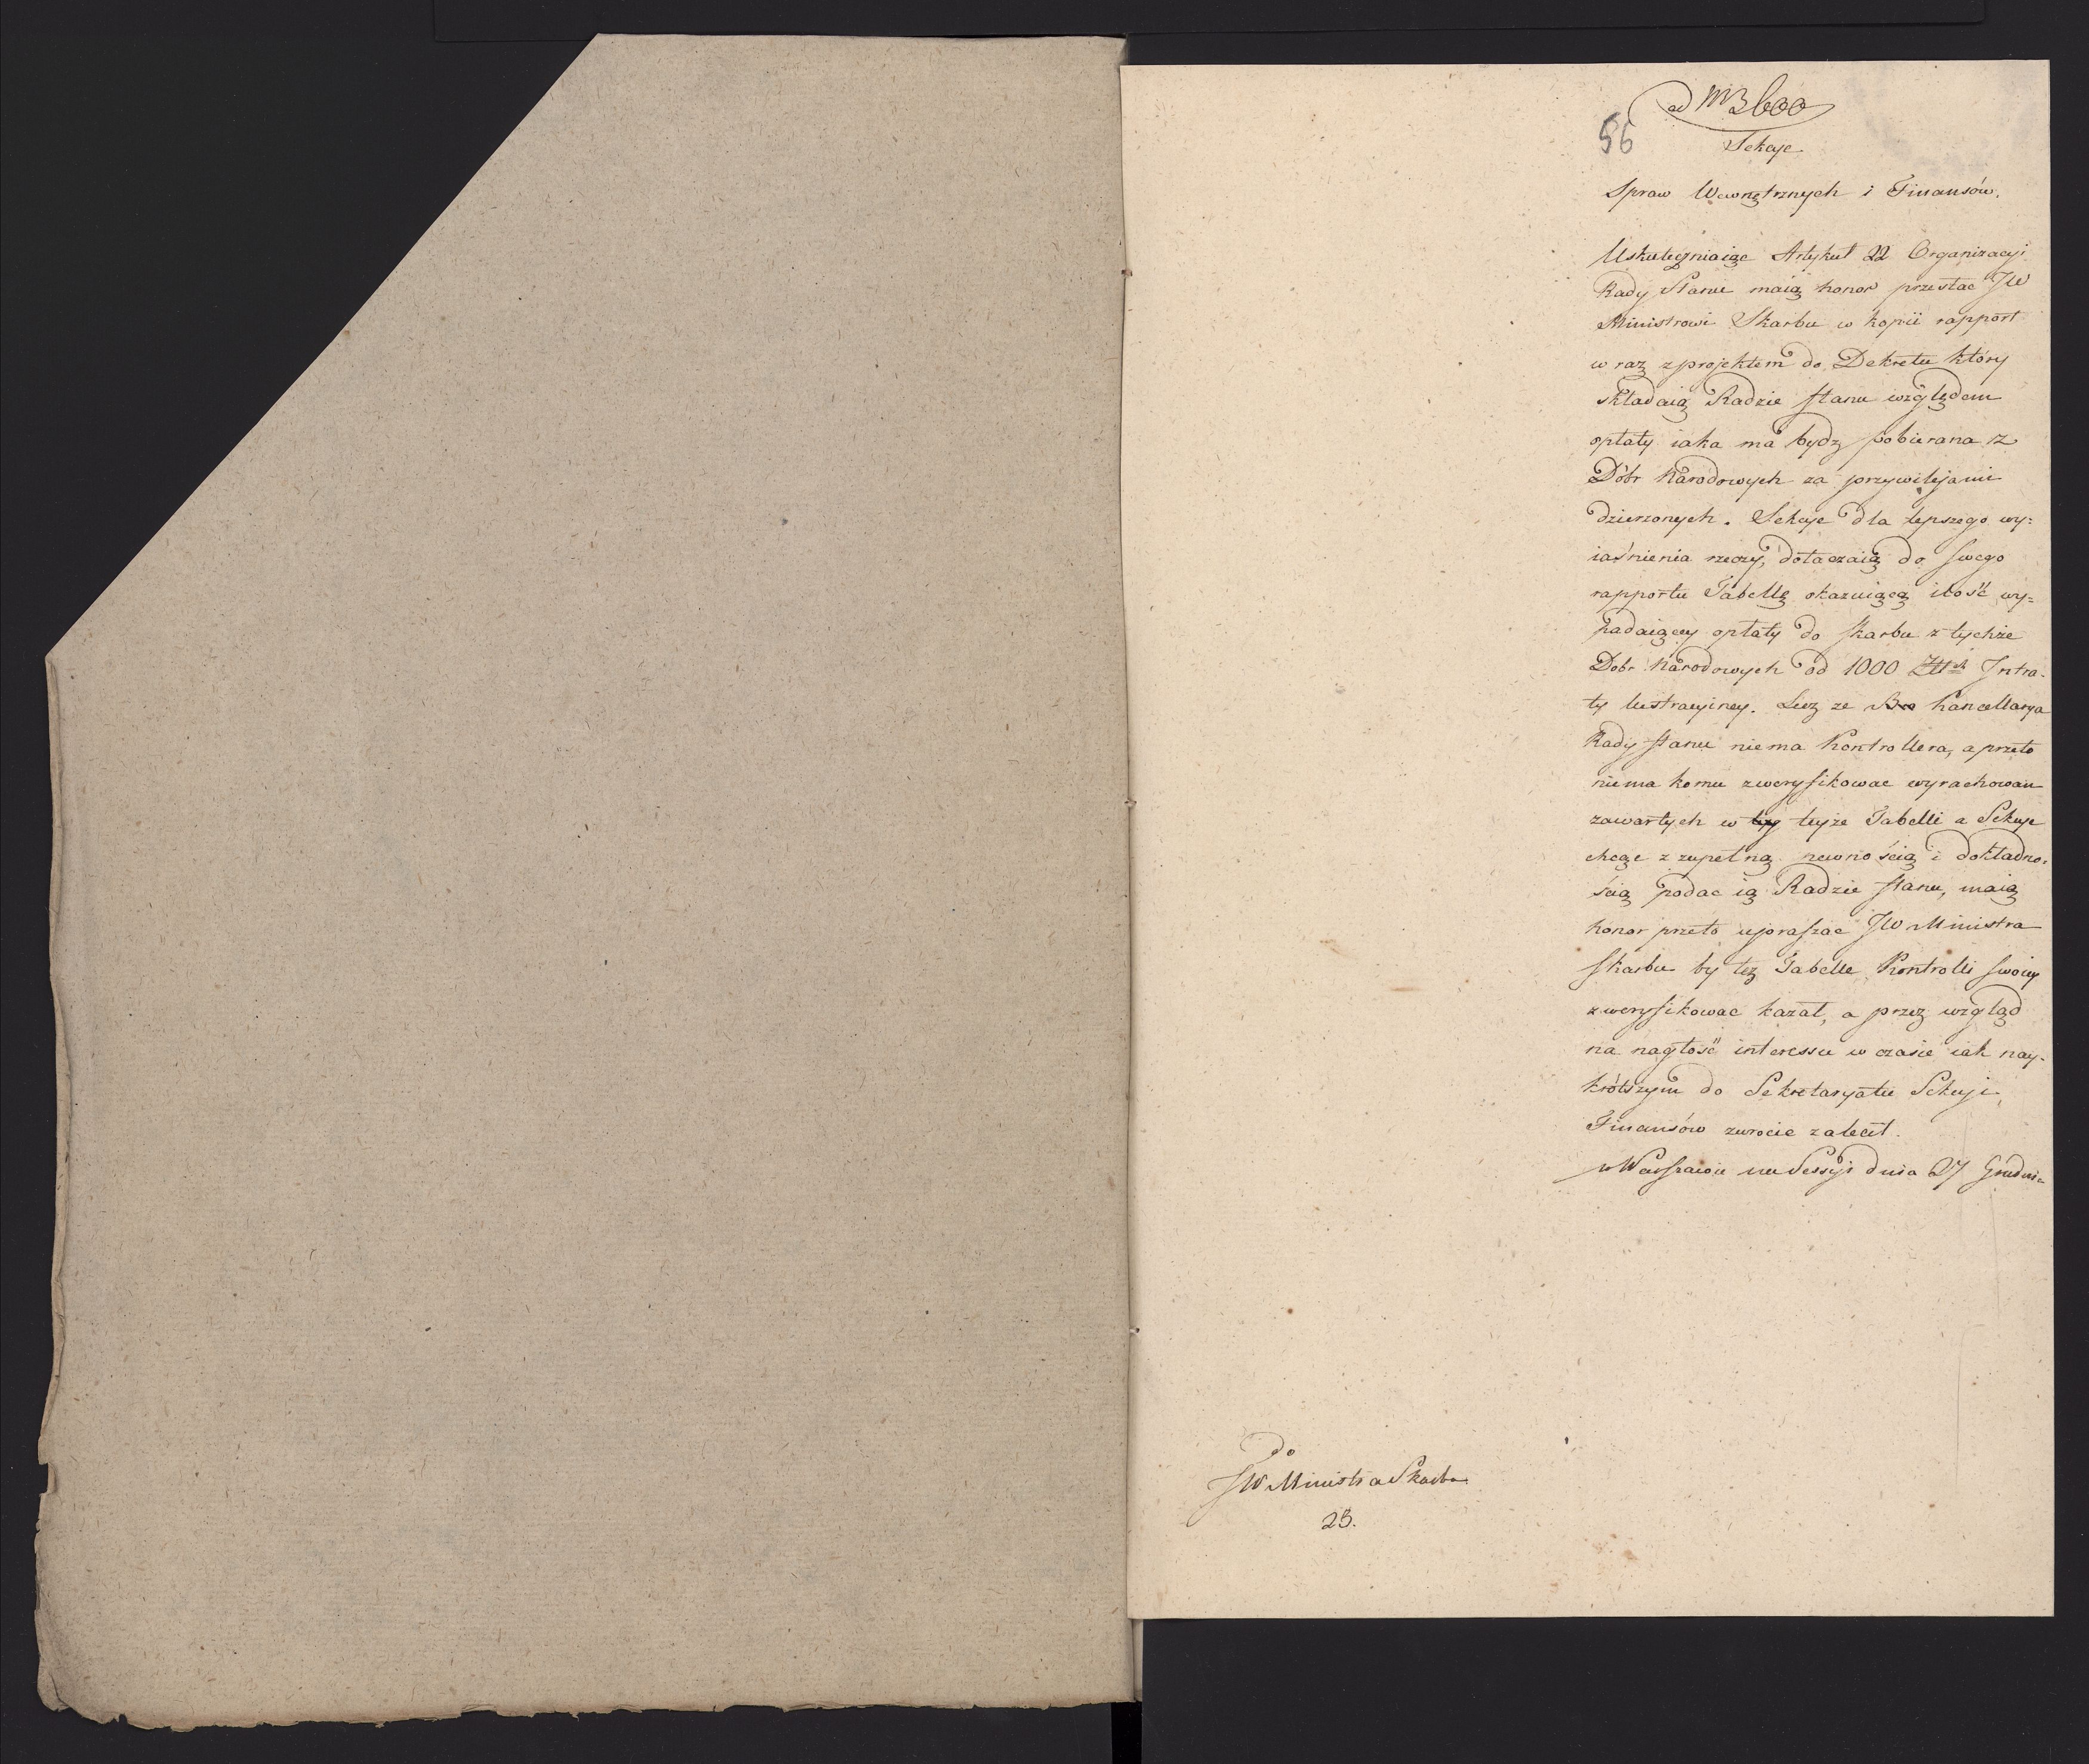 ad N 3600
56
Sekcye
Spraw Wewnętrznych i Finansów.
Uskuteczniaiąc Artykuł 22 Organizacyi
Rady Stanu maią honor przesłac JW
Ministrowi Skarbu w kopii rapport
w raz z projektem do Dekretu który
składaią Radzie stanu względem
opłaty iaka ma bydz pobierana z
Dóbr Narodowych za przywilejami
dzierzonych. Sekcye dla lepszego wy=
iaśnienia rzeczy, dołączaią do swego
rapportu Tabellę okazuiącą ilość wy=
padaiącey opłaty do skarbu z tychże
Dobr Narodowych od 1000 Złł Intra-
ty lustracyiney. Lecz ze Kancellarya
Rady stanu niema Kontrollera, a przeto
niema komu zweryfikowac wyrachowan
zawartych w teyze Tabelli a Sekcye
chcąc z zupełną pewnością i dokładno=
ścią podac ią Radzie stanu, maią
honor przeto upraszac JW Ministra
skarbu by tez Tabelle Kontrolli swoiey
zweryfikowac kazał, a przez wzgląd
na nagłość interessu w czasie iak nay-
krótszym do Sekretaryatu Sekcyi
Finansów zwrocic zalecił.
w Warszawie na Sessyi dnia 27 Grudnia
do
JW Ministra Skarbu
23.